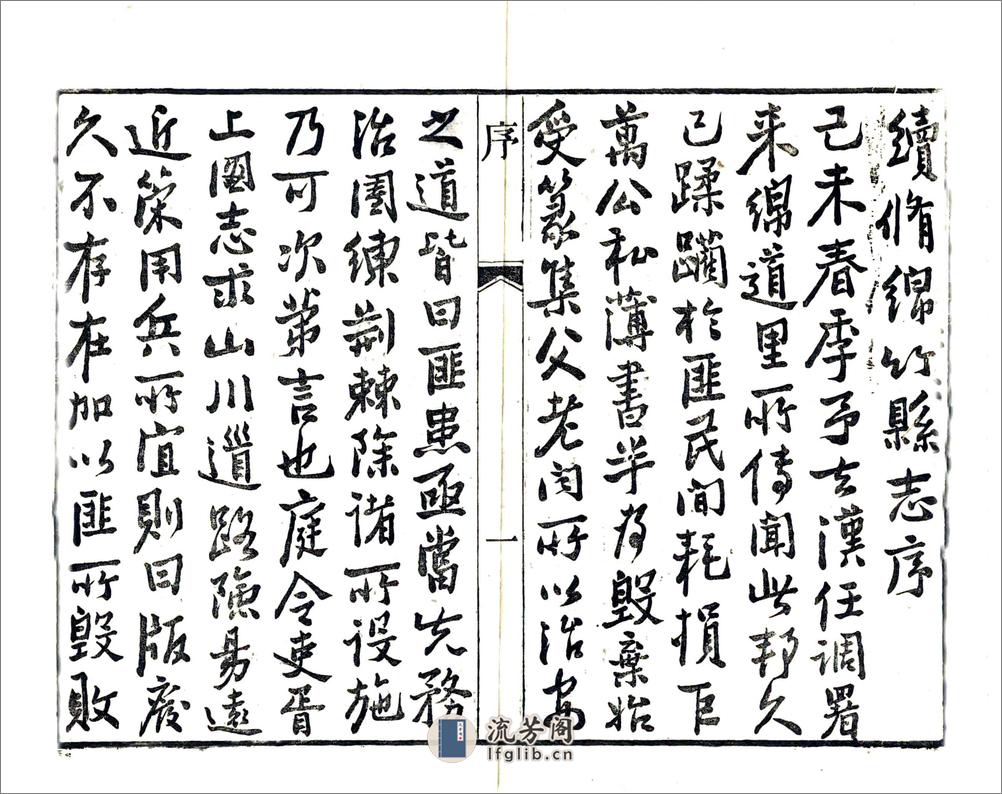 續脩綿竹縣志序
己未春季予去漢任調署
来綿道里所傳聞此邦久
已蹂躪於匪民間耗損巨
萬公私薄書半為毀棄始
受篆集父老問所以治安
之道皆曰匪患亟當先務
治團練荆棘除諸所設施
乃可次第言也庭令吏胥
上圖志求山川道路險易遠
近策用兵所宜則曰版廢
久不存在加以匪所毀敗
序
一
流芳阁
lfglib.cn